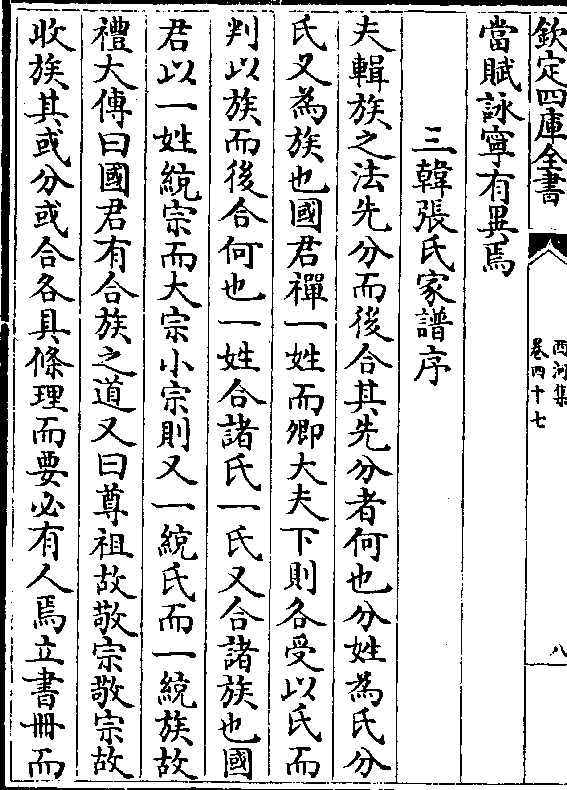 欽定四庫全書
西河集
卷四十七
八
當賦詠寧有異焉
三韓張氏家譜序
夫輯族之法先分而後合其先分者何也分姓為氏分
氏又為族也國君禪一姓而卿大夫下則各受以氏而
判以族而後合何也一姓合諸氏一氏又合諸族也國
君以一姓統宗而大宗小宗則又一統氏而一統族故
禮大傳曰國君有合族之道又曰尊祖故敬宗敬宗故
收族其或分或合各具條理而要必有人焉立書冊而